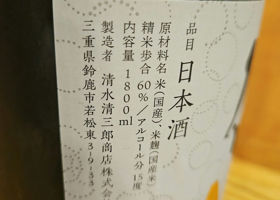 品目 日本酒
原材料名 米(国産)、米麹(国産米)
精米歩合 60%/アルコール分 15度
内容量 1800ml
製造者 清水清三郎商店株式会
三重県鈴鹿市若松東3-9-33